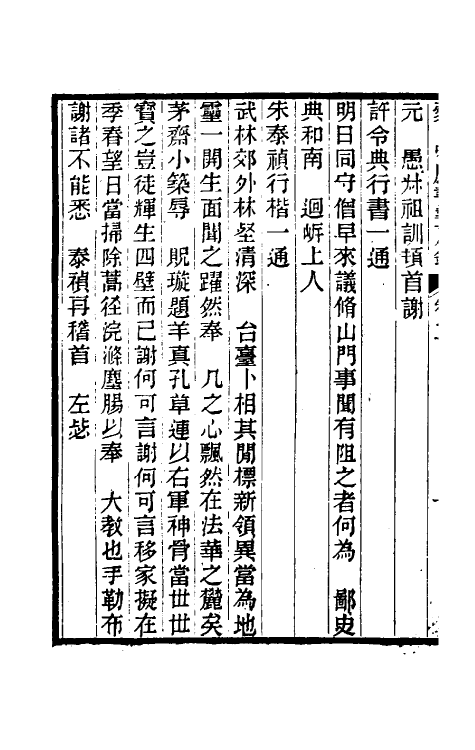 元　愚弟祖訓頓首謝
許令典行書一通
明日同守僧早來議脩山門事聞有阻之者何為　鄙史
典和南　迴蜯上人
朱泰禎行楷一通
武林郊外林壑清深　台臺卜相其閒標新領異當為地
靈一開生面聞之躍然奉　几之心飄然在法華之麓矣
茅齋小築辱　貺璇題羊真孔草連以右軍神骨當世世
寶之豈徒輝生四壁而已謝何可言謝何可言移家擬在
季春望日當掃除蒿徑浣滌塵腸以奉　大教也手勒布
謝諸不能悉　泰禎再稽首　左玅